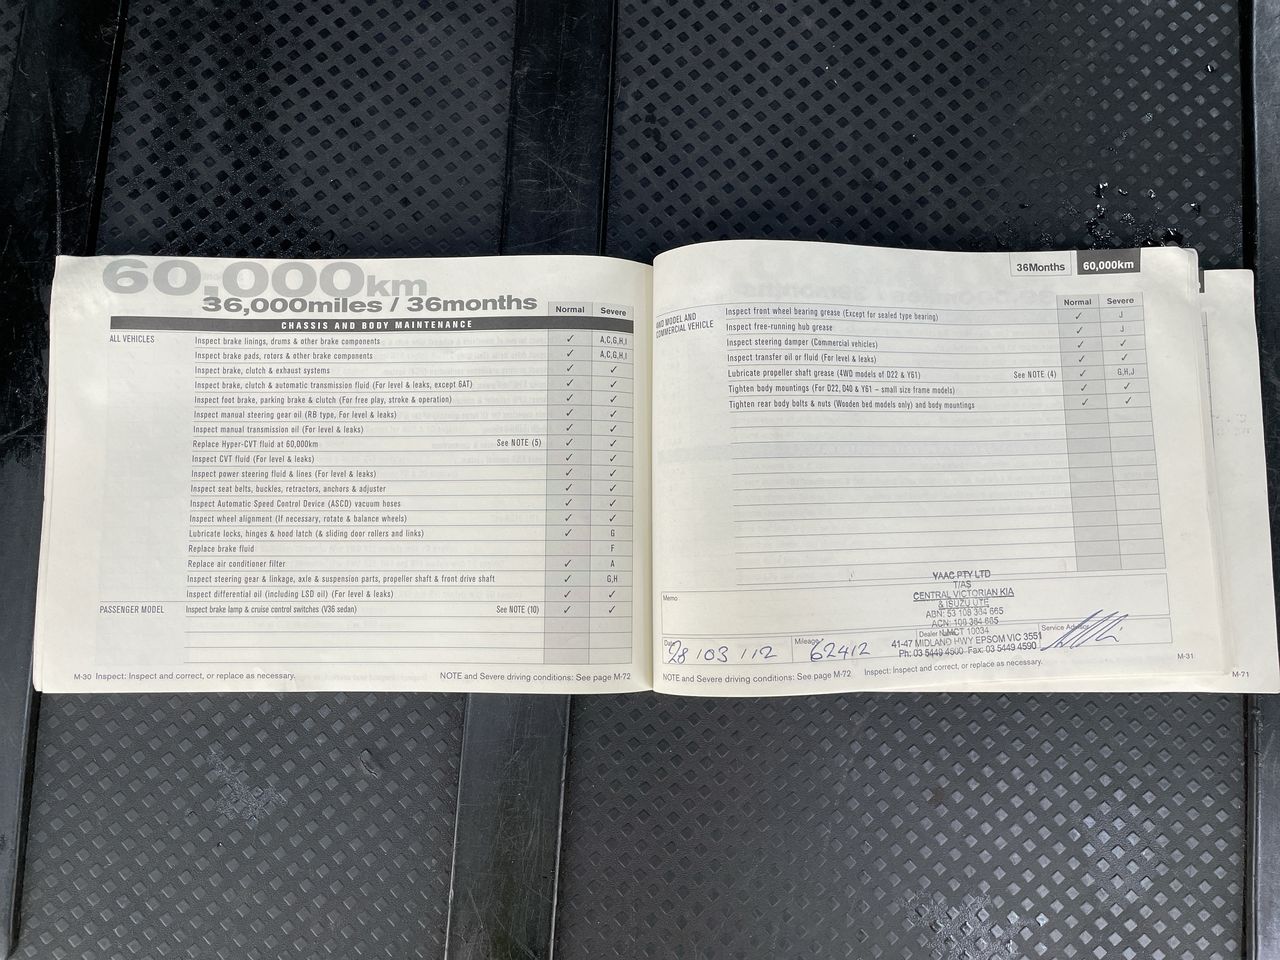 60,000km
36,000miles / 36months
Normal Severe
CHASSIS AND BODY MAINTENANCE
ALL VEHICLES Inspect brake linings, drums & other brake components ✓ A,C,G,H,I
Inspect brake pads, rotors & other brake components ✓ A,C,G,H,I
Inspect brake, clutch & exhaust systems ✓ ✓
Inspect brake, clutch & automatic transmission fluid (For level & leaks, except 6AT) ✓ ✓
Inspect foot brake, parking brake & clutch (For free play, stroke & operation) ✓ ✓
Inspect manual steering gear oil (RB type, For level & leaks) ✓ ✓
Inspect manual transmission oil (For level & leaks) ✓ ✓
Replace Hyper-CVT fluid at 60,000km See NOTE (5) ✓ ✓
Inspect CVT fluid (For level & leaks) ✓ ✓
Inspect power steering fluid & lines (For level & leaks) ✓ ✓
Inspect seat belts, buckles, retractors, anchors & adjuster ✓ ✓
Inspect Automatic Speed Control Device (ASCD) vacuum hoses ✓ ✓
Inspect wheel alignment (If necessary, rotate & balance wheels) ✓ ✓
Lubricate locks, hinges & hood latch (& sliding door rollers and links) ✓ G
Replace brake fluid F
Replace air conditioner filter ✓ A
Inspect steering gear & linkage, axle & suspension parts, propeller shaft & front drive shaft ✓ G,H
Inspect differential oil (including LSD oil) (For level & leaks) ✓ ✓
PASSENGER MODEL Inspect brake lamp & cruise control switches (V36 sedan) See NOTE (10) ✓ ✓
M-30 Inspect: Inspect and correct, or replace as necessary. NOTE and Severe driving conditions: See page M-72
36Months 60,000km
Normal Severe
4WD MODEL AND
COMMERCIAL VEHICLE
Inspect front wheel bearing grease (Except for sealed type bearing) ✓ J
Inspect free-running hub grease ✓ J
Inspect steering damper (Commercial vehicles) ✓ ✓
Inspect transfer oil or fluid (For level & leaks) ✓ ✓
Lubricate propeller shaft grease (4WD models of D22 & Y61) See NOTE (4) ✓ G,H,J
Tighten body mountings (For D22, D40 & Y61 – small size frame models) ✓ ✓
Tighten rear body bolts & nuts (Wooden bed models only) and body mountings ✓ ✓
Memo
YAAC PTY LTD
T/AS
CENTRAL VICTORIAN KIA
& ISUZU UTE
ABN: 53 108 364 665
ACN: 108 364 665
LMCT 10034
41-47 MIDLAND HWY EPSOM VIC 3551
Ph: 03 5449 4500 Fax: 03 5449 4590
Date 28/03/12 Mileage 62412 Dealer Service Advisor
NOTE and Severe driving conditions: See page M-72 Inspect: Inspect and correct, or replace as necessary.
M-31
M-71